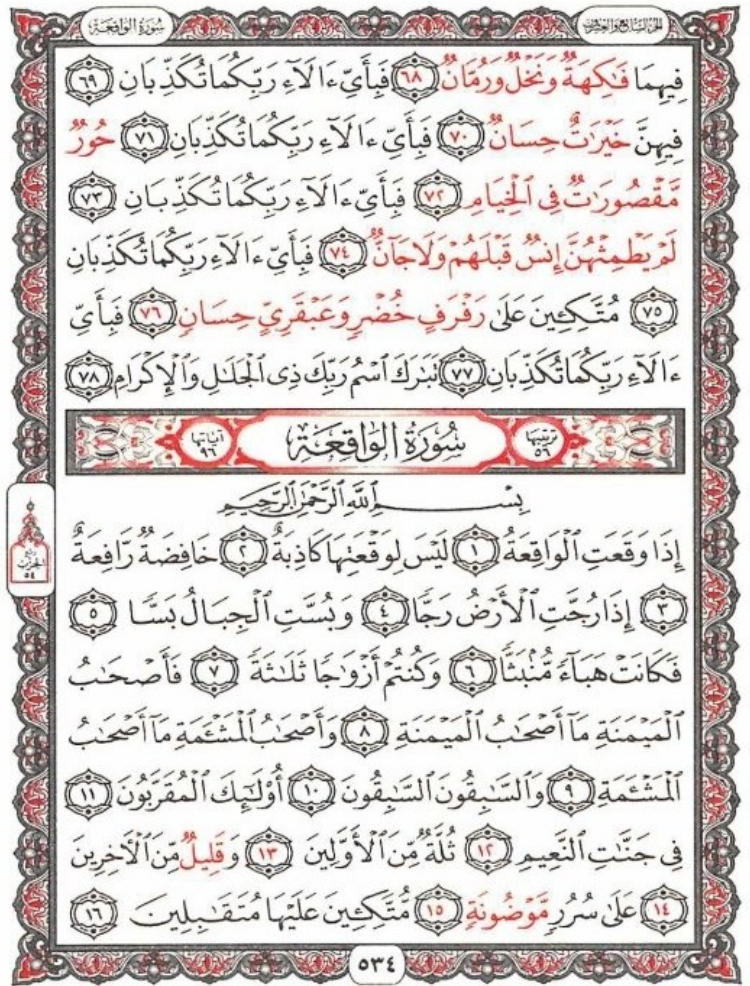 سُورَةُ الوَاقِعَة الجُزءُ السَّابِعُ وَالعِشرُونَ
فِيهِمَا فَٰكِهَةٌ وَنَخْلٌ وَرُمَّانٌ ٦٨ فَبِأَىِّ ءَالَآءِ رَبِّكُمَا تُكَذِّبَانِ ٦٩
فِيهِنَّ خَيْرَٰتٌ حِسَانٌ ٧٠ فَبِأَىِّ ءَالَآءِ رَبِّكُمَا تُكَذِّبَانِ ٧١ حُورٌ
مَّقْصُورَٰتٌ فِى ٱلْخِيَامِ ٧٢ فَبِأَىِّ ءَالَآءِ رَبِّكُمَا تُكَذِّبَانِ ٧٣
لَمْ يَطْمِثْهُنَّ إِنسٌ قَبْلَهُمْ وَلَا جَآنٌّ ٧٤ فَبِأَىِّ ءَالَآءِ رَبِّكُمَا تُكَذِّبَانِ
٧٥ مُتَّكِـِٔينَ عَلَىٰ رَفْرَفٍ خُضْرٍ وَعَبْقَرِىٍّ حِسَانٍ ٧٦ فَبِأَىِّ
ءَالَآءِ رَبِّكُمَا تُكَذِّبَانِ ٧٧ تَبَٰرَكَ ٱسْمُ رَبِّكَ ذِى ٱلْجَلَٰلِ وَٱلْإِكْرَامِ ٧٨
ترتيبها ٥٦ سُورَةُ الوَاقِعَة آياتها ٩٦
بِسْمِ ٱللَّهِ ٱلرَّحْمَٰنِ ٱلرَّحِيمِ
إِذَا وَقَعَتِ ٱلْوَاقِعَةُ ١ لَيْسَ لِوَقْعَتِهَا كَاذِبَةٌ ٢ خَافِضَةٌ رَّافِعَةٌ
٣ إِذَا رُجَّتِ ٱلْأَرْضُ رَجًّا ٤ وَبُسَّتِ ٱلْجِبَالُ بَسًّا ٥
فَكَانَتْ هَبَآءً مُّنۢبَثًّا ٦ وَكُنتُمْ أَزْوَٰجًا ثَلَٰثَةً ٧ فَأَصْحَٰبُ
ٱلْمَيْمَنَةِ مَآ أَصْحَٰبُ ٱلْمَيْمَنَةِ ٨ وَأَصْحَٰبُ ٱلْمَشْـَٔمَةِ مَآ أَصْحَٰبُ
ٱلْمَشْـَٔمَةِ ٩ وَٱلسَّٰبِقُونَ ٱلسَّٰبِقُونَ ١٠ أُو۟لَٰٓئِكَ ٱلْمُقَرَّبُونَ ١١
فِى جَنَّٰتِ ٱلنَّعِيمِ ١٢ ثُلَّةٌ مِّنَ ٱلْأَوَّلِينَ ١٣ وَقَلِيلٌ مِّنَ ٱلْءَاخِرِينَ
١٤ عَلَىٰ سُرُرٍ مَّوْضُونَةٍ ١٥ مُّتَّكِـِٔينَ عَلَيْهَا مُتَقَٰبِلِينَ ١٦
ربع
الحزب
٥٤
٥٣٤